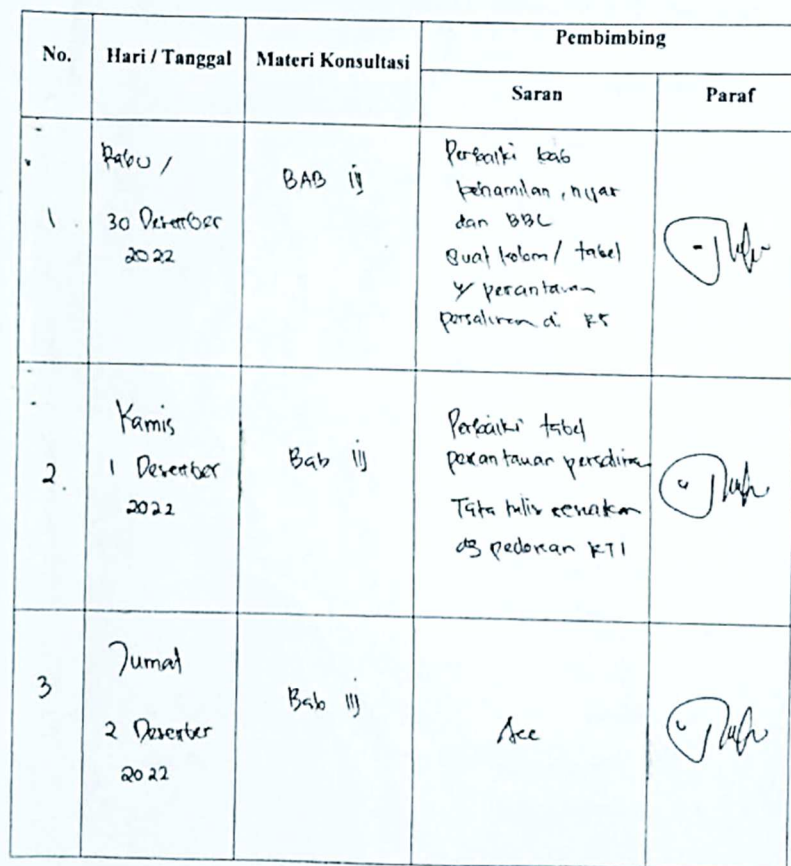 No. Hari / Tanggal Materi Konsultasi Pembimbing
Saran Paraf
1 Rabu /
30 Desember
2022
BAB iij
Perbaiki bab
kehamilan, nifas
dan BBL
Buat kolom / tabel
persalinan di
2. Kamis
1 Desember
2022
Bab iij
Perbaiki tabel
pemantauan persalinan
Tata tulis sesuaikan
dg pedoman KTI
3 Jumat
2 Desember
2022
Bab iij
Acc